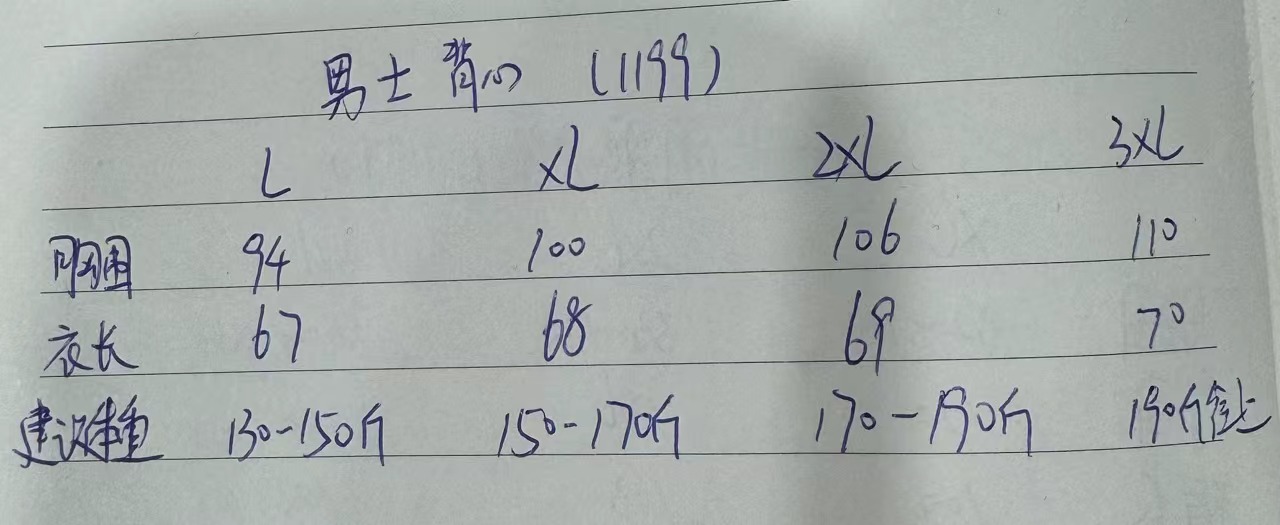 男士背心 (1199)
L XL 2XL 3XL
胸围 94 100 106 110
衣长 67 68 69 70
建议体重 130-150斤 150-170斤 170-190斤 190斤